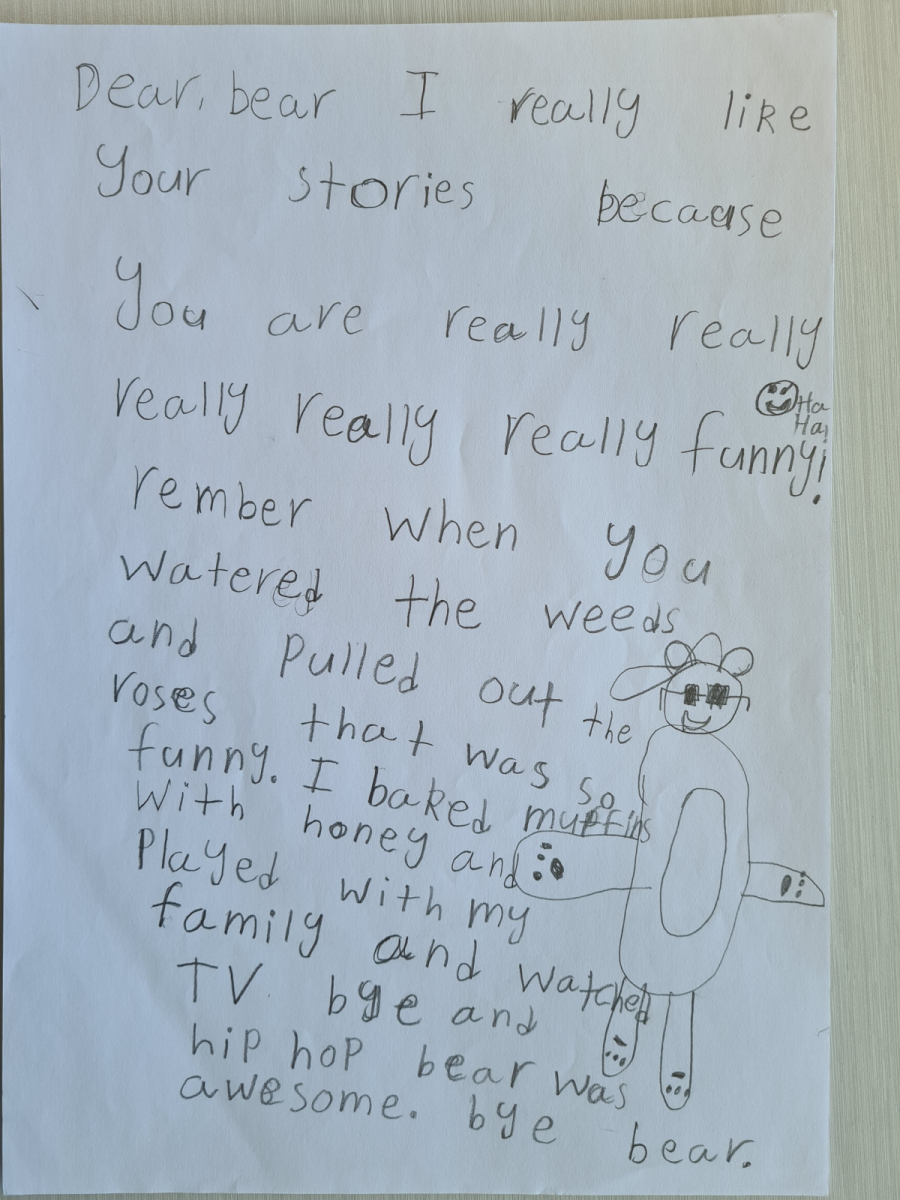 Dear, bear I really like
Your stories because
You are really really
really really really funny!
Ha
Ha!
rember when you
watered the weeds
and Pulled out the
roses that was so
funny. I baked muffins
With honey and
Played with my
family and watched
TV bye and
hip hop bear was
awesome. bye bear.